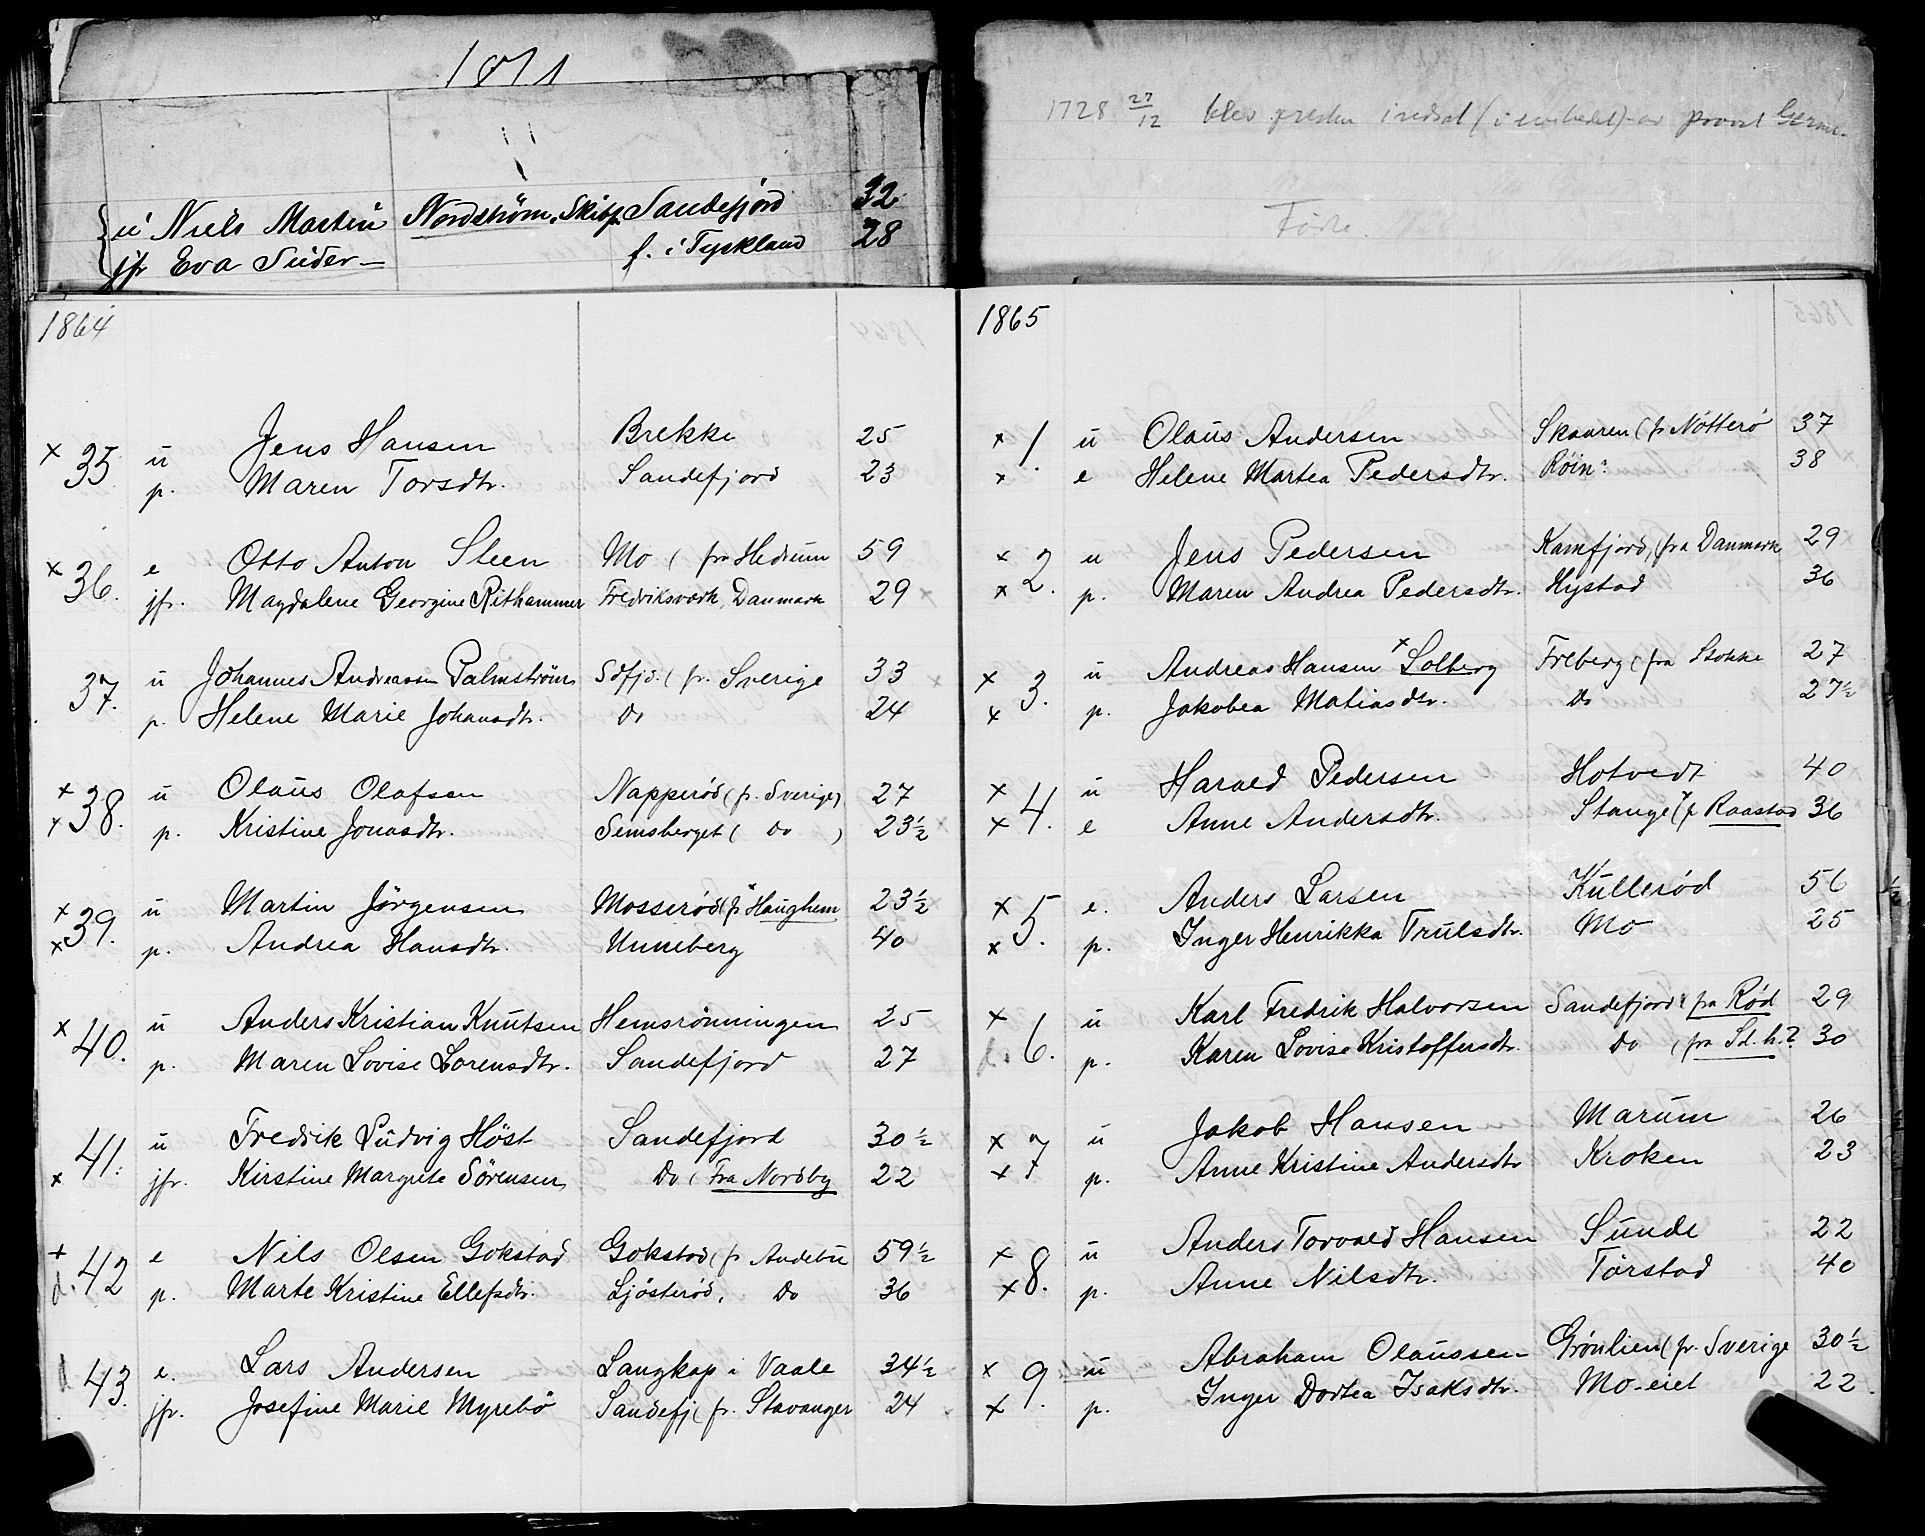 1871
u Niels Martin Nordstrøm, Skibsf. Sandefjord 32
jfr Eva Suder — f. i Tyskland 28
1864
x 35 u Jens Hansen Brekke 25
p. Maren Torsdtr. Sandefjord 23
x 36. e Otto Anton Steen Mo ( fra Hedrum 59
jfr. Magdalene Georgine Rithammer Fredriksværk, Danmark 29
37. u Johannes Andreassen Palmstrøm Sdfjd. ( fr. Sverige 33
p. Helene Marie Johansdtr. Do 24
x 38. u Olaus Olafsen Napperød ( fr. Sverige) 27
x p. Kristine Jonasdtr. Semsberget ( Do ) 23½
x 39. u Martin Jörgensen Mosserød (fr Haughem 23½
x p. Andrea Hansdtr. Unneberg 40
x 40. u Anders Kristian Knutsen Hemsrönningen 25
p. Maren Lovise Lorensdtr. Sandefjord 27
41. u Fredrik Ludvig Höst Sandefjord 30½
x jfr. Kirstine Margrete Sörensen Do ( Fra Nordby 22
+ 42 e Nils Olsen Gokstad Gokstad ( fr. Andebu 59½
d. p. Marte Kristine Ellefsdtr. Ljösterød, Do 36
d 43. e. Lars Andersen Langkap i Vaale 34½
jfr. Josefine Marie Myrebö Sandefj ( fr. Stavanger 24
1728 27/12 blev præsten indsat ( i embedet) av provst
Fødte.
1865
x 1. u Olaus Andersen Skaaren ( fr Nötterö 37
x e Helene Martea Pedersdtr. Röin? 38
x 2. u Jens Pedersen Kamfjord, (fra Danmark 29
x p. Maren Andrea Pedersdtr. Hystad 36
x 3. u Andreas Hansen x Solberg Freberg ( fra Stokke 27
x p. Jakobea Matiasdtr. Do 27½
x 4. u Harald Pedersen Hotvedt 40
x e Anne Andersdtr. Stange ( fr Raastad 36
x 5. e. Anders Larsen Kullerød 56
x p. Inger Henrikka Trulsdtr. Mo 25
x 6. u Karl Fredrik Halvorsen Sandefjord ( fra Rød 29
d. p. Karen Lovise Kristoffersdtr. Do ( fra Sd. h.? 30
x 7 u Jakob Hansen Marum 26
x p. Anne Kristine Andersdtr Kroken 23
x 8. u Anders Torvald Hansen Sunde 22
x p. Anne Nilsdtr. Tørstad 40
x 9. u Abraham Olaussen Grönlien ( fr. Sverige 30½
x p. Inger Dortea Isaksdtr. Mo-eiet 22